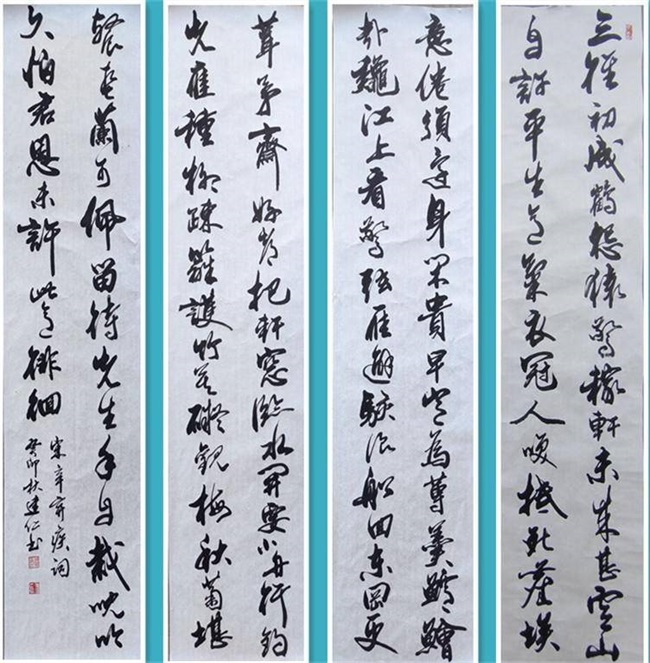 三徑初成鶴怨猿驚稼軒未来甚雲山
自許平生意氣衣冠人咲抵死塵埃
意倦須還身閑貴早豈為蓴羹鱸鱠
哉龝江上看驚弦雁避駭浪船回東岡更
葺茅齋好都把軒窓臨水開要小舟行釣
先應種柳疎籬護竹莫礙觀梅秋菊堪
餐春蘭可佩留待先生手自栽沈吟
久怕君恩未許此意徘徊
宋辛弃疾词
癸卯秋建仁书